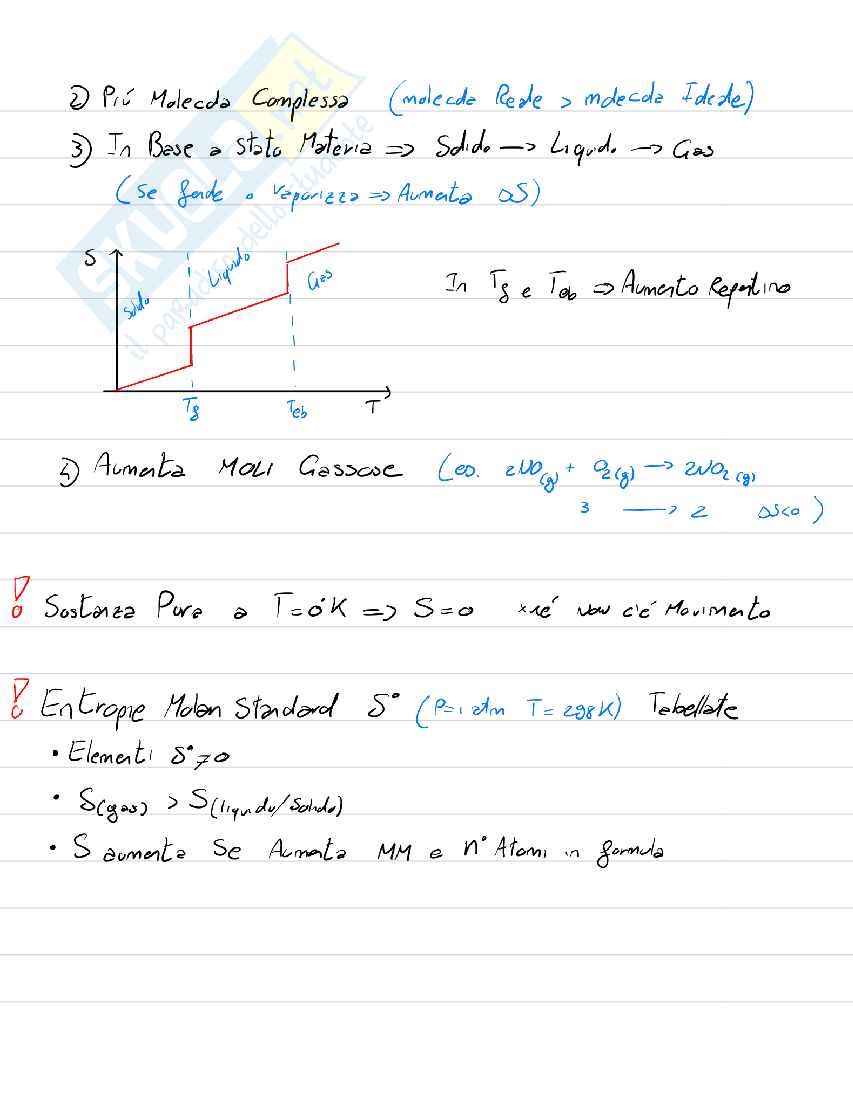 2) Più Molecola Complessa (molecola Reale > molecola Ideale)
3) In Base a Stato Materia => Solido -> Liquido -> Gas
(Se fonde o vaporizza => Aumenta ΔS)
S
Solido
Liquido
Gas
In Tf e Teb => Aumento Repentino
Tf
Teb
T
4) Aumenta MOLI Gassose (es. 2NO(g) + O2(g) -> 2NO2(g)
3 -> 2 ΔS<0)
! Sostanza Pura a T=0°K => S=0 xké Non c'é Movimento
! Entropie Molari Standard S° (P=1 atm T=298K) Tabellate
• Elementi S°≠0
• S(gas) > S(liquido/Solido)
• S aumenta Se Aumenta MM e n° Atomi in formula
SKUOLA.net
il paradiso dello studente